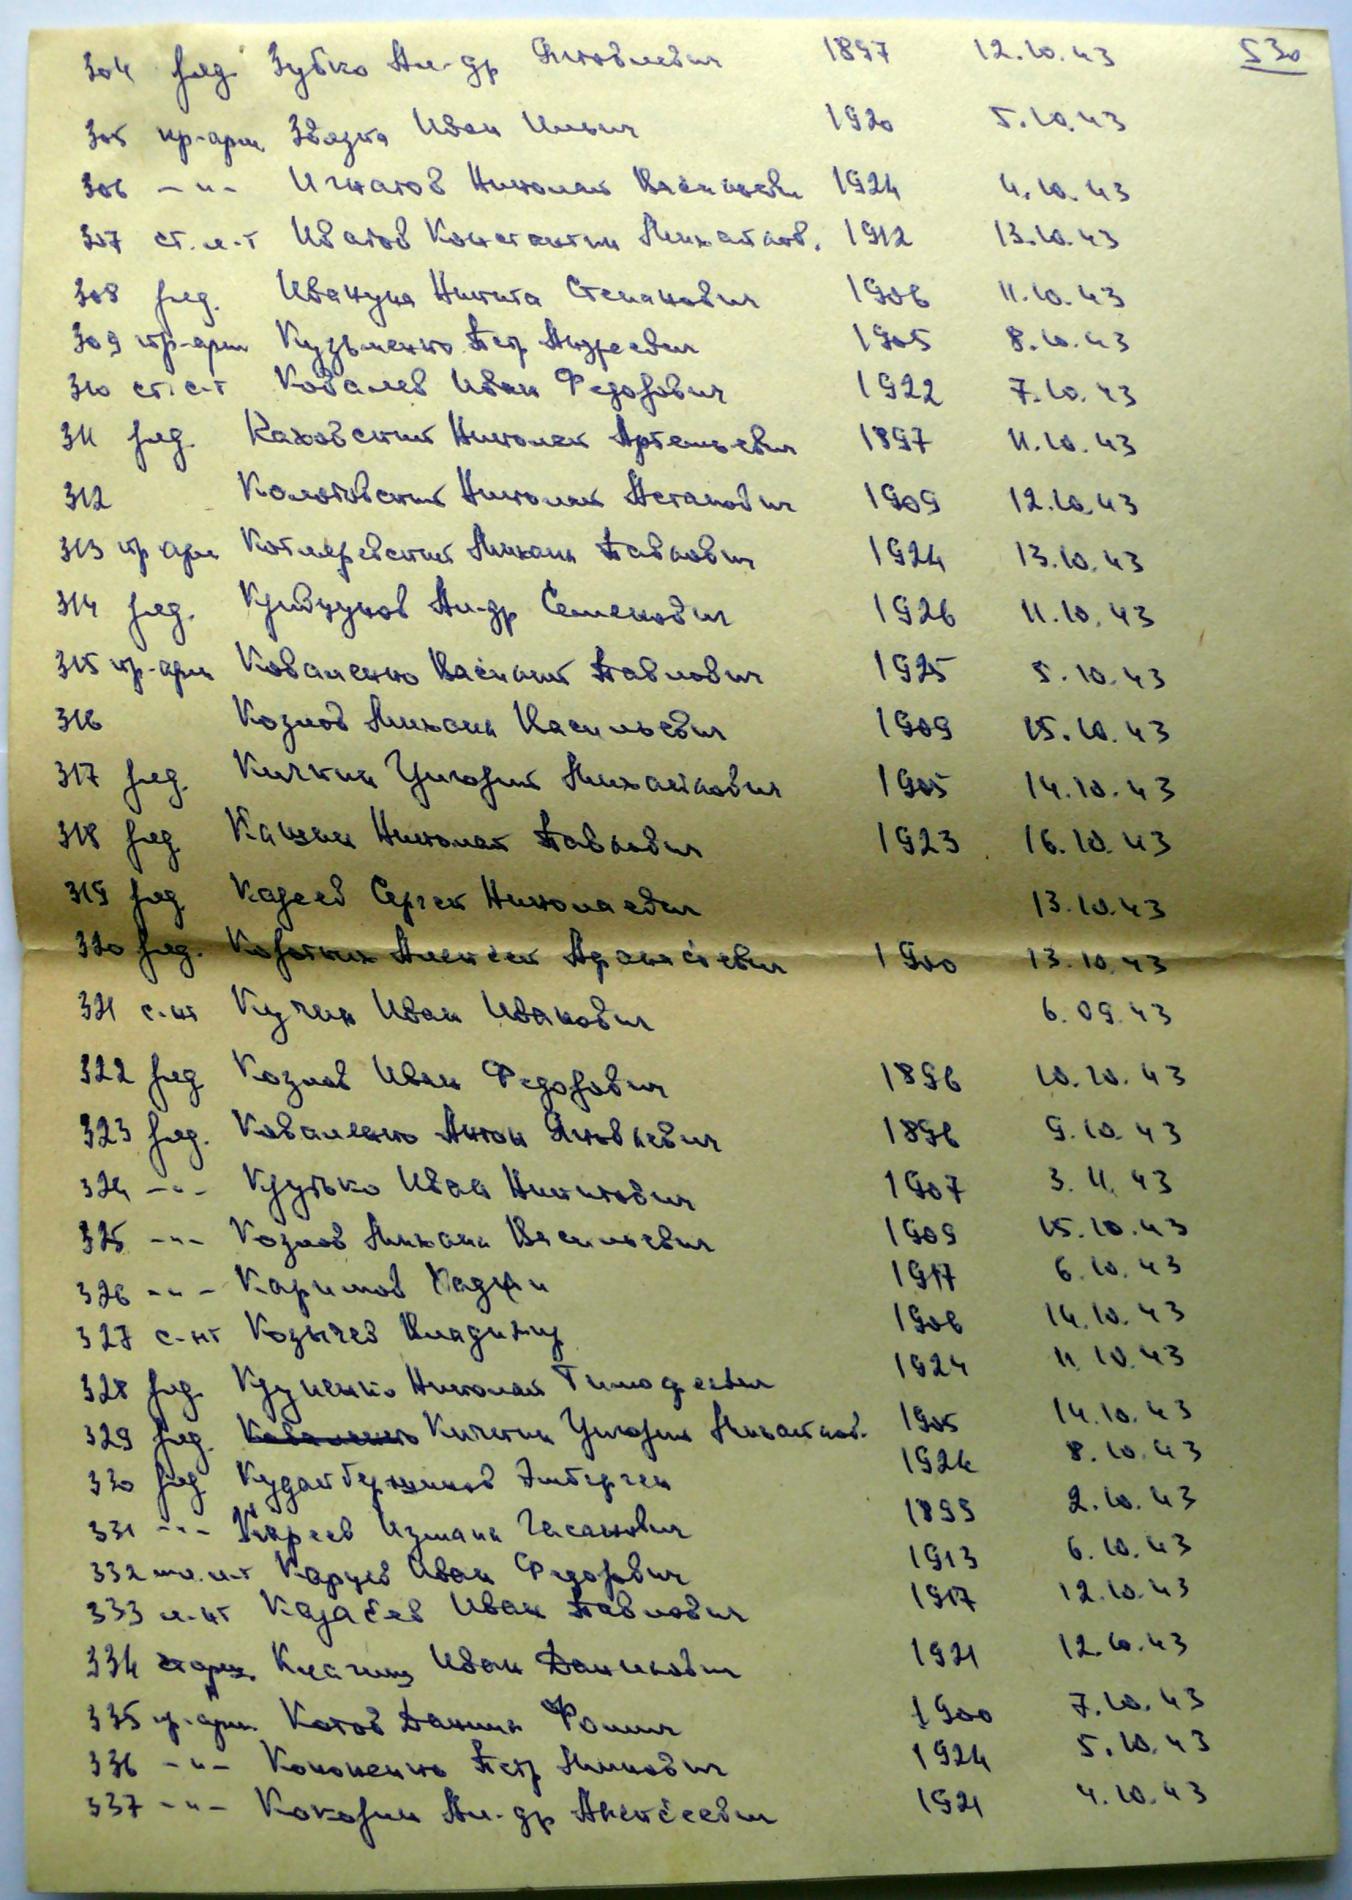 530
304 ряд. Зубко Ал-др Яковлевич 1897 12.10.43
305 кр-арм. Звязка Иван Ильич 1920 5.10.43
306 -"- Игнатов Николай Васильеви 1924 4.10.43
307 ст. л-т Иватов Константин Михайлов. 1912 13.10.43
308 ряд. Ивануна Никита Степанович 1906 11.10.43
309 кр-арм Кузьменко Петр Андреевич 1905 8.10.43
310 ст. с-т Ковалев Иван Федорович 1922 7.10.43
311 ряд. Каховский Николай Артемьевич 1897 11.10.43
312 Николай Астапович 1909 12.10.43
313 кр арм Котляревский Михаил Павлович 1924 13.10.43
314 ряд. Ал-др Семенович 1926 11.10.43
315 кр-арм Коваленко Василий Павлович 1925 5.10.43
316 Козлов Михаил Васильевич 1909 15.10.43
317 ряд. Кичкин Григорий Михайлович 1905 14.10.43
318 ряд. Кашин Николай Павлович 1923 16.10.43
319 ряд Кареев Сергей Николаевич 13.10.43
320 ряд. Алексей Афанасьевич 1900 13.10.43
321 с-нт Кучин Иван Иванович 6.09.43
322 ряд Козлов Иван Федорович 1896 10.10.43
323 ряд. Коваленко Антон Яковлевич 1896 9.10.43
324 -"- Крутько Иван Никитович 1907 3.11.43
325 -"- Козлов Михаил Васильевич 1909 15.10.43
326 -"- Каримов Хаджи 1917 6.10.43
327 с-нт Козычев Владимир 1906 14.10.43
328 ряд. Крупенко Николай Тимофеевич 1924 11.10.43
329 ряд. Коваленко Кичкин Григорий Михайлов. 1905 14.10.43
330 ряд 1924 8.10.43
331 -"- Измаил Гасанович 1899 2.10.43
332 мл. л-т Карцев Иван Федорович 1913 6.10.43
333 л-нт Иван Павлович 1917 12.10.43
334 Иван Данилович 1921 12.10.43
335 кр-арм. Котов Даниил Фомич 1900 7.10.43
336 -"- Кононенко Петр 1924 5.10.43
337 -"- Кокорин Ал-др Алексеевич 1921 4.10.43